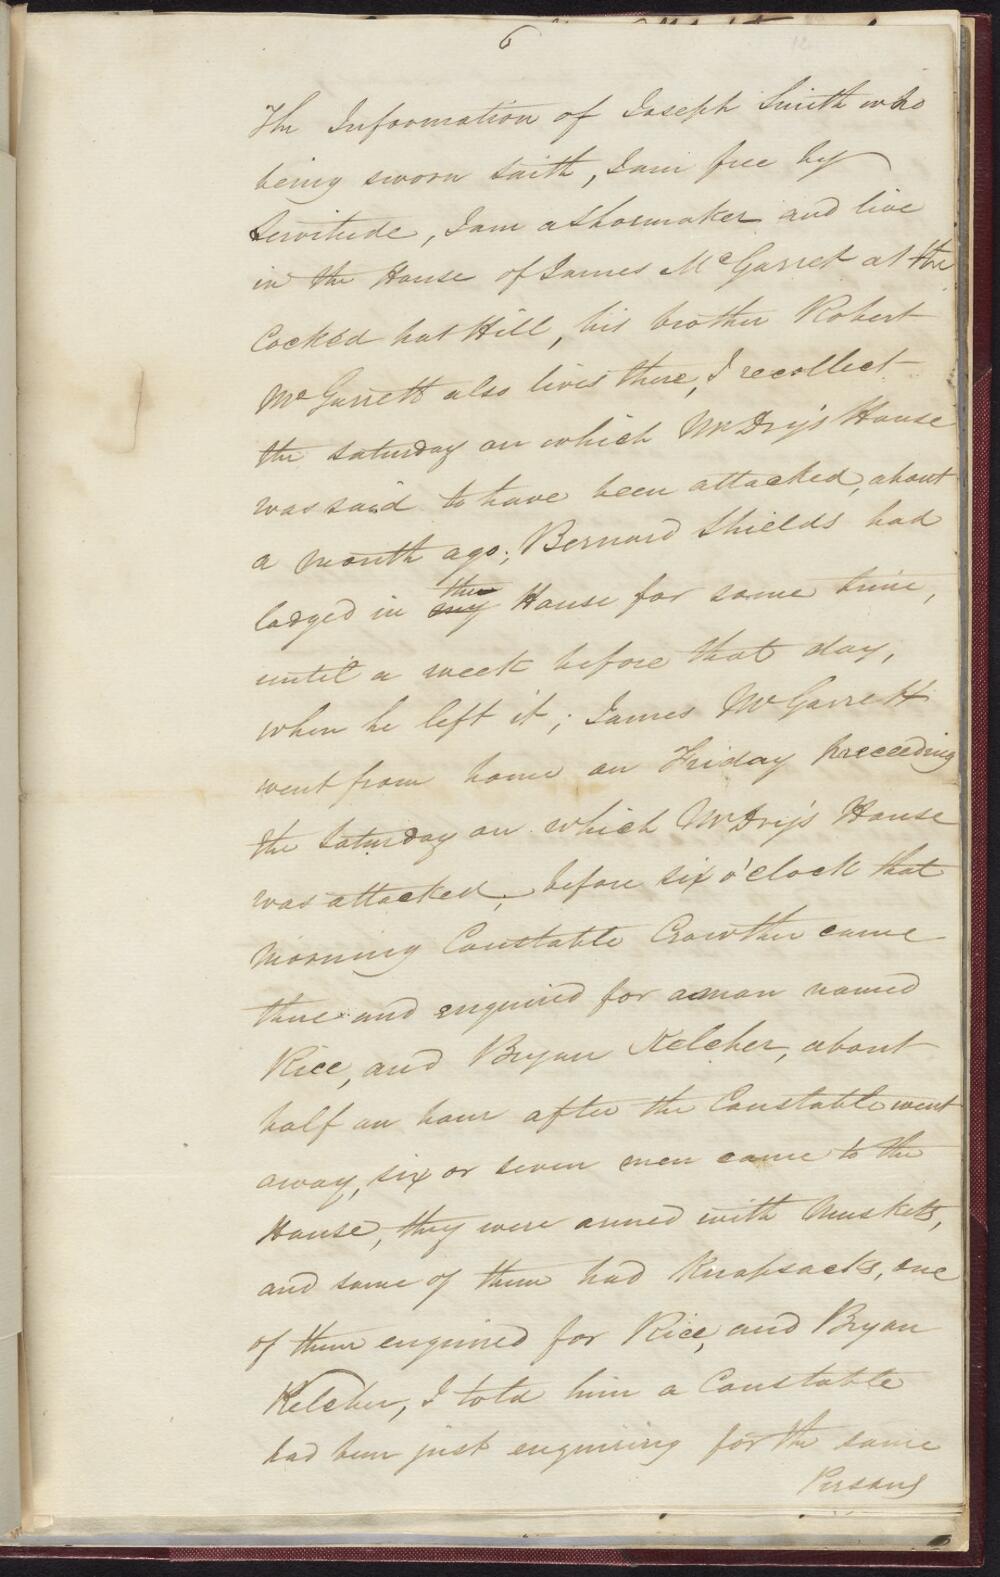 6
12
The Information of Joseph Smith who
being sworn saith, I am free by
Servitude, I am a Shoemaker and live
in the House of James McGarret at the
Cocked hat Hill, his brother Robert
McGarrett also lives there, I recollect
the Saturday on which Mr Dry's House
was said to have been attacked, about
a month ago; Bernard Shields had
lodged in my the House for some time,
until a week before that day,
when he left it; James McGarrett
went from home on Friday preceeding
the Saturday on which Mr Dry's House
was attacked, before six o'clock that
Morning Constable Crowther came
there and enquired for a man named
Rice, and Bryan Kelcher, about
half an hour after the Constable went
away, six or seven men came to the
House, they were armed with Muskets,
and some of them had Knapsacks, one
of them enquired for Rice, and Bryan
Kelcher, I told him a Constable
had been just enquiring for the same
Persons